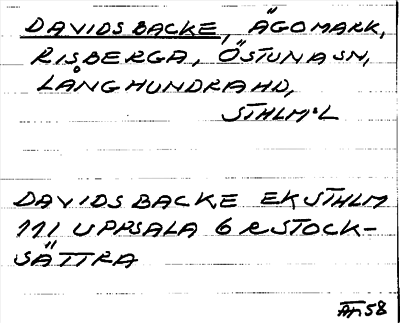 DAVIDSBACKE, ÄGOMARK,
RISBERGA, ÖSTUNA SN,
LÅNGHUNDRA HD,
STHLM:L
DAVIDSBACKE EK STHLM
111 UPPSALA 6 R STOCK-
SÄTTRA
58